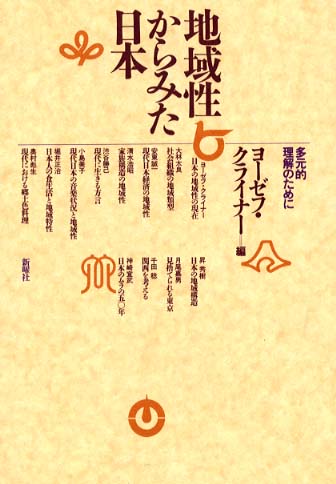 地域性
からみた
日本
多元的
理解のために
ヨーゼフ・
クライナー編
ヨーゼフ・クライナー
日本の地域性の現在
大林太良
社会組織の地域類型
安東誠一
現代日本経済の地域性
清水浩昭
家族構造の地域性
渋谷勝己
現代に生きる方言
小島美子
現代日本の音楽状況と地域性
堀井正治
日本人の食生活と地域特性
奥村彪生
現代における郷土色料理
昇秀樹
日本の地域構造
月尾嘉男
見捨てられる東京
千田稔
関西を考える
神崎宣武
日本のムラの五〇年
新曜社